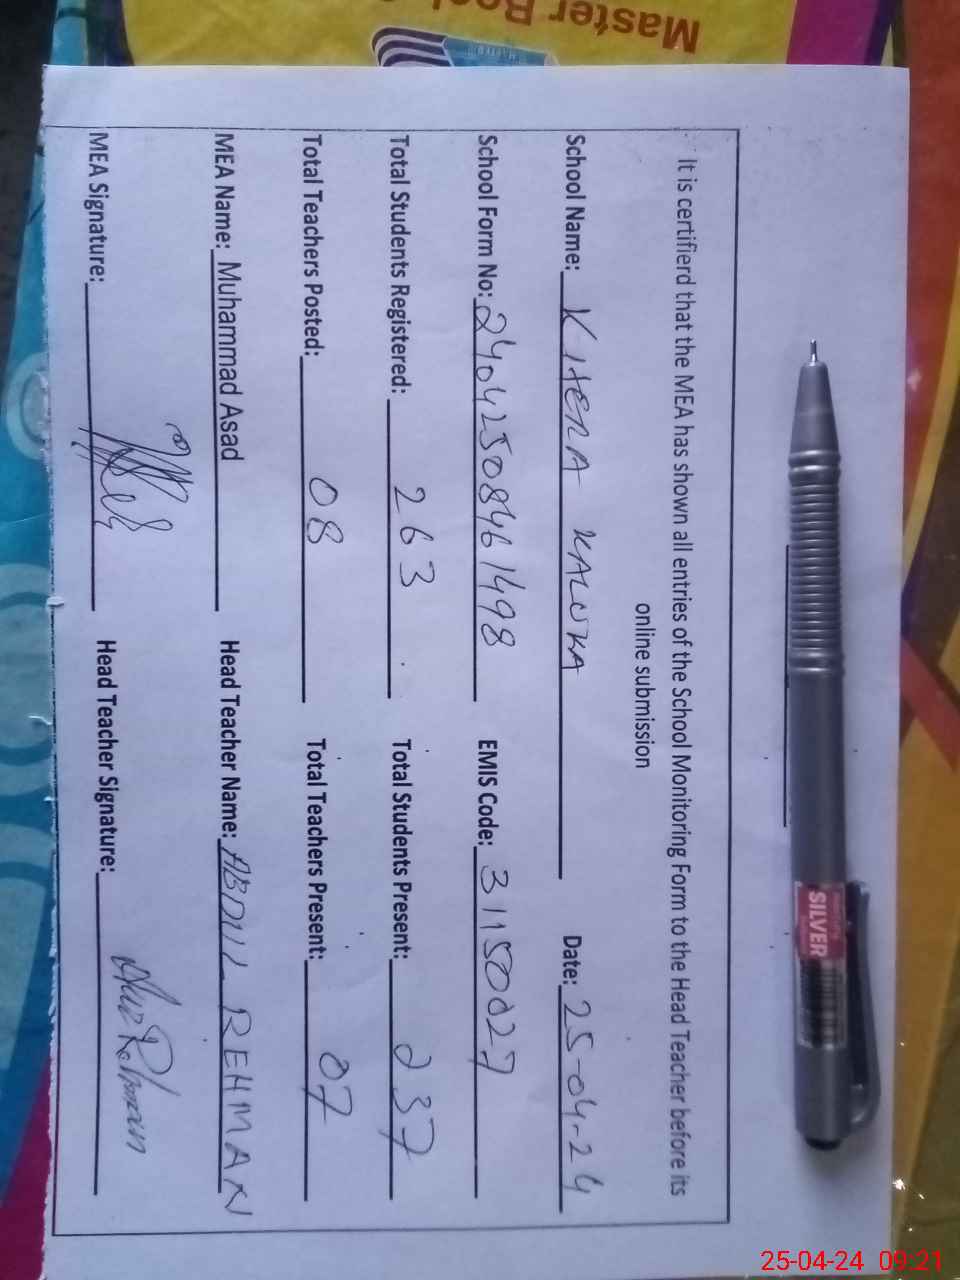 Master Book
It is certifierd that the MEA has shown all entries of the School Monitoring Form to the Head Teacher before its
online submission
School Name: KITERA KALUKA Date: 25-04-24
School Form No: 24042508461498 EMIS Code: 31150027
Total Students Registered: 263 Total Students Present: 237
Total Teachers Posted: 08 Total Teachers Present: 07
MEA Name: Muhammad Asad Head Teacher Name: ABDUL REHMAN
MEA Signature: Head Teacher Signature:
SILVER
25-04-24 09:21